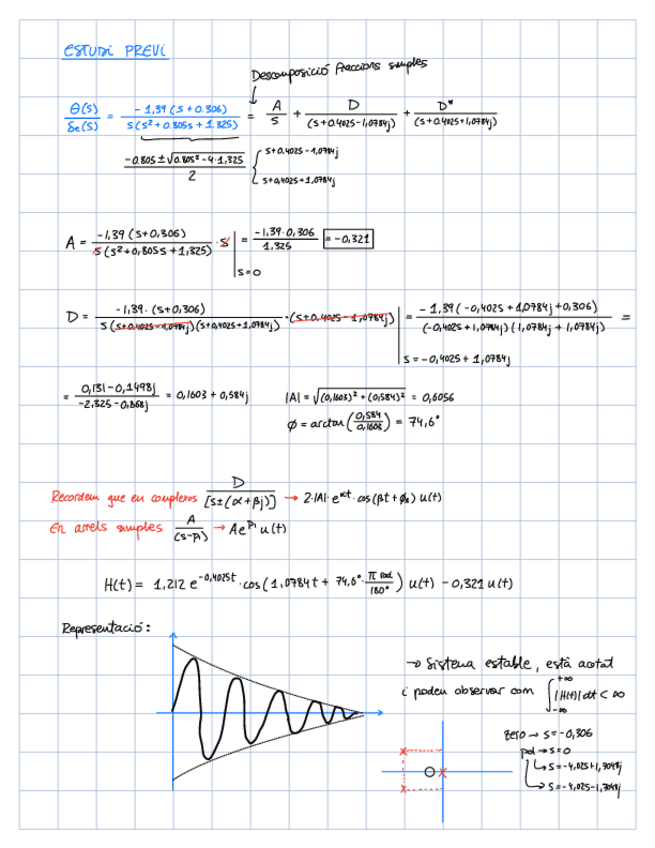 ESTUDI PREVI
Descomposició fraccions simples
θ(s)/δe(s) = -1,39(s+0.306)/s(s²+0.805s+1.325) = A/s + D/(s+0.4025-1,0784j) + D*/(s+0.4025+1,0784j)
-0.805±√0.805²-4·1,325/2 { s+0.4025-1,0784j
s+0,4025+1,0784j
A = -1,39(s+0,306)/s(s²+0,805s+1,325) · s |s=0 = -1,39·0,306/1.325 = -0,321
D = -1,39·(s+0,306)/s(s+0.4025-1,0784j)(s+0,4025+1,0784j) · (s+0.4025-1,0784j) |s=-0,4025+1,0784j = -1,39(-0,4025+1,0784j+0,306)/(-0,4025+1,0784j)(1,0784j+1,0784j) =
= 0,131-0,1498j/-2,325-0,868j = 0,1603+0,584j |A| = √(0,1603)²+(0,584)² = 0,6056
φ = arctan(0,584/0,1603) = 74,6°
Recordem que en complexos D/[s±(α+βj)] → 2·|A|·e^αt·cos(βt+φ) u(t)
En arrels simples A/(s-pi) → Ae^Pi u(t)
H(t) = 1,212 e^-0,4025t · cos(1,0784t + 74,6°·π rad/180°) u(t) - 0,321 u(t)
Representació:
→ Sistema estable, està acotat
i podem observar com ∫-∞+∞ |H(t)|dt < ∞
zero → s=-0,306
pol → s=0
↳ s=-4,025+1,7048j
↳ s=-4,025-1,7048j